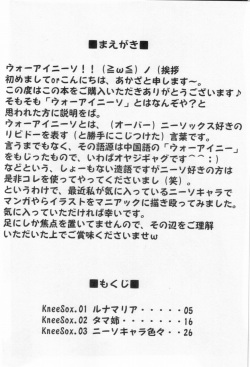 ■まえがき■
ウォーアイニーソ！！(≧ω≦)ノ(挨拶
初めましてorこんにちは、あかざと申します～。
この度はこの本をご購入いただきありがとうございます♪
そもそも「ウォーアイニーソ」とはなんぞや？と
思われた方に説明をば。
ウォーアイニーソとは、(オーバー)ニーソックス好きの
リビドーを表す(と勝手にこじつけた)言葉です。
言うまでもなく、その語源は中国語の「ウォーアイニー」
をもじったもので、いわばオヤジギャグです(^^;)
などという、しょーもない造語ですがニーソ好きの方は
是非コレを使ってやってくださいまし(笑)。
というわけで、最近私が気に入っているニーソキャラで
マンガやらイラストをマニアックに描き殴ってみました。
気に入っていただければ幸いです。
足にしか焦点を置いてませんので、その辺をご理解
いただいた上でご賞味くださいませω
■もくじ■
KneeSox.01 ルナマリア・・・・・05
KneeSox.02 タマ姉・・・・・・・16
KneeSox.03 ニーソキャラ色々・・26